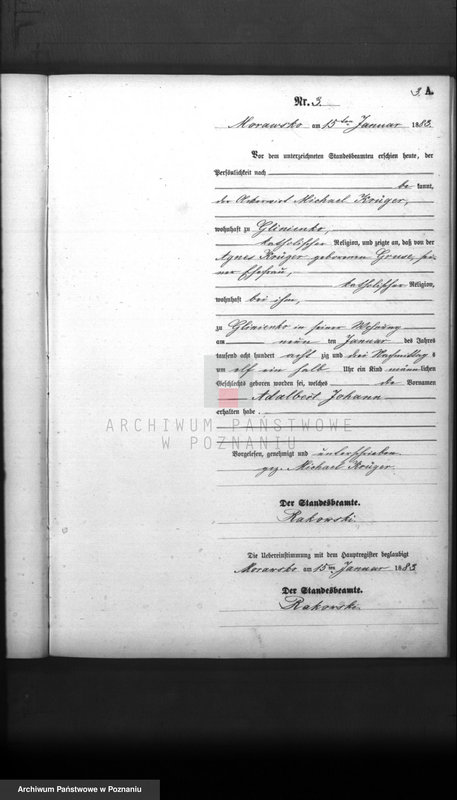 3. A.
Nr. 3.
Morawsko am 15ten Januar 1883.
Vor dem unterzeichneten Standesbeamten erschien heute, der
Persönlichkeit nach
be kannt,
der Ackerwirt Michael Krüger,
wohnhaft zu Glinienko,
katholischer Religion, und zeigte an, daß von der
Agnes Krüger geborenen Gruse, sei-
ner Ehefrau,
katholischer Religion,
wohnhaft bei ihm,
zu Glinienko in seiner Wohnung
am neun ten Januar des Jahres
tausend acht hundert acht zig und drei Nachmittag s
um elf ein halb Uhr ein Kind männlichen
Geschlechts geboren worden sei, welches die Vornamen
Adalbert Johann
erhalten habe.
ARCHIWUM PAŃSTWOWE
W POZNANIU
Vorgelesen, genehmigt und unterschrieben.
gez. Michael Krüger.
Der Standesbeamte.
Rakowski.
Die Uebereinstimmung mit dem Hauptregister beglaubigt
Morawsko am 15ten Januar 1883.
Der Standesbeamte.
Rakowski.
Archiwum Państwowe w Poznaniu